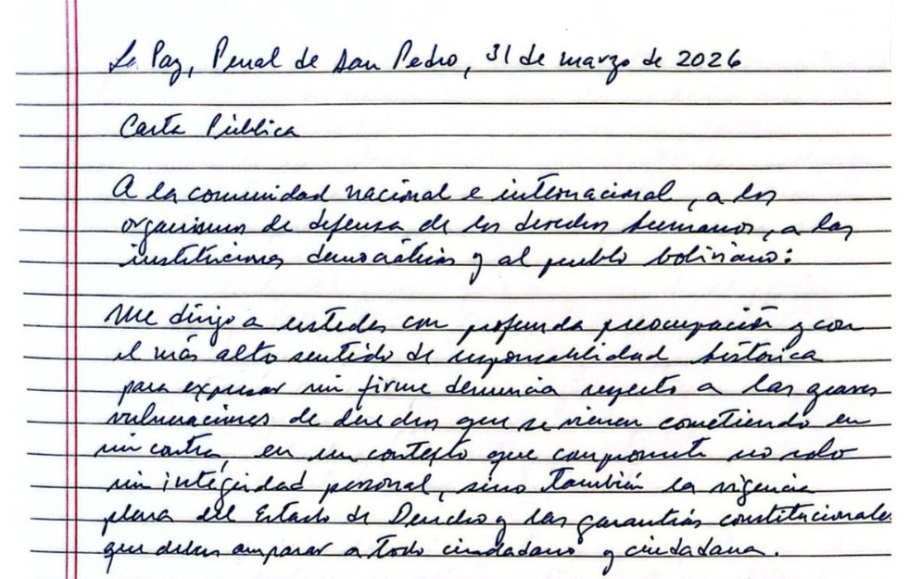 La Paz, Penal de San Pedro, 31 de marzo de 2026
Carta Pública
A la comunidad nacional e internacional, a los
organismos de defensa de los derechos humanos, a las
instituciones democráticas y al pueblo boliviano:
Me dirijo a ustedes con profunda preocupación y con
el más alto sentido de responsabilidad histórica
para expresar mi firme denuncia respecto a las graves
vulneraciones de derechos que se vienen cometiendo en
mi contra, en un contexto que compromete no solo
mi integridad personal, sino también la vigencia
plena del Estado de Derecho y las garantías constitucionales
que deben amparar a todo ciudadano y ciudadana.